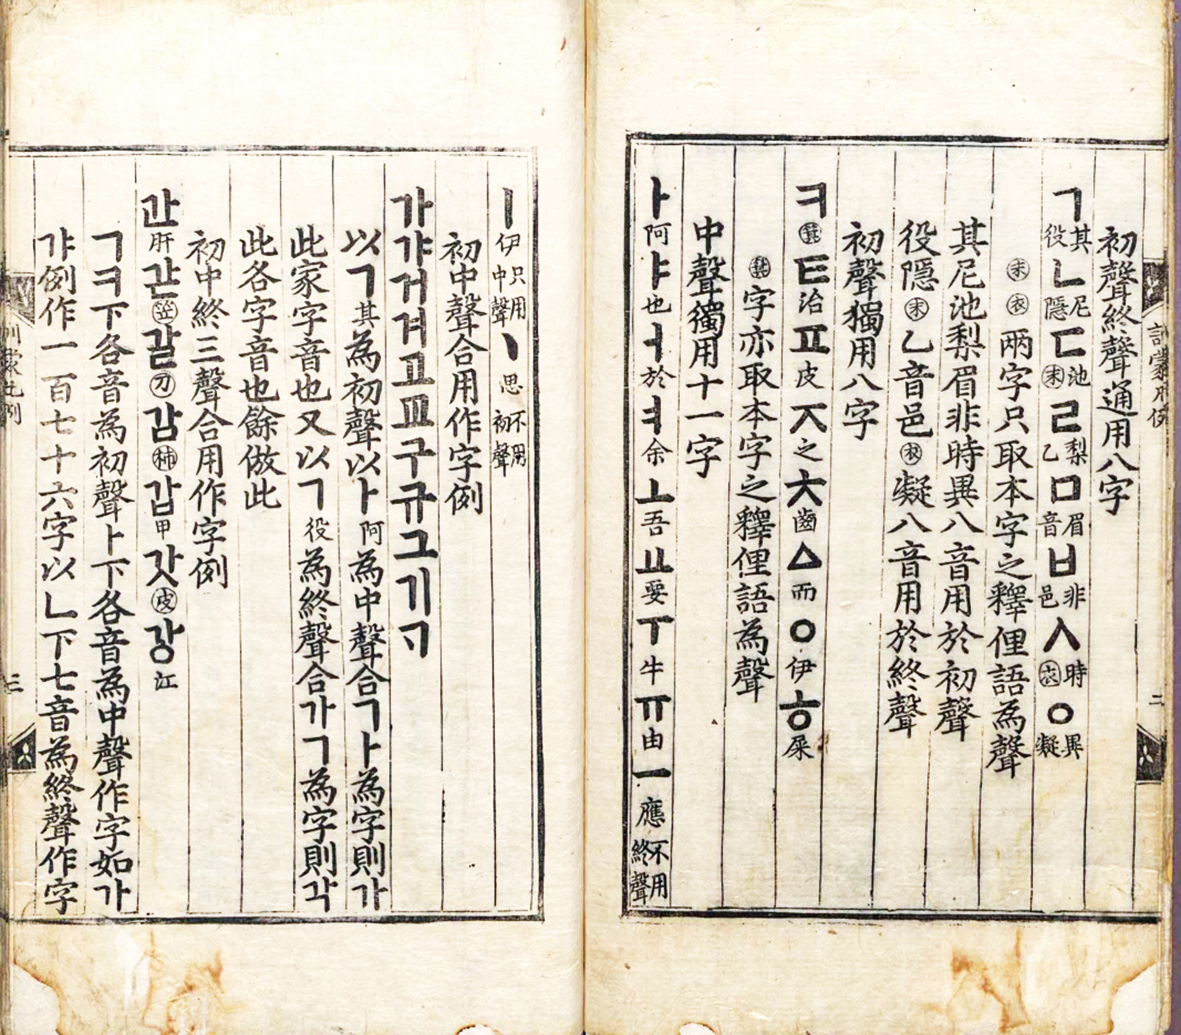 初聲終聲通用八字
ㄱ其役ㄴ尼隱ㄷ池末ㄹ梨乙ㅁ眉音ㅂ非邑ㅅ時衣ㆁ異凝
末衣兩字只取本字之釋俚語為聲
其尼池梨眉非時異八音用於初聲
役隱末乙音邑衣凝八音用於終聲
初聲獨用八字
ㅋ箕ㅌ治ㅍ皮ㅈ之ㅊ齒ㅿ而ㅇ伊ㅎ屎
箕字亦取本字之釋俚語為聲
中聲獨用十一字
ㅏ阿ㅑ也ㅓ於ㅕ余ㅗ吾ㅛ要ㅜ牛ㅠ由ㅡ應不用終聲
ㅣ伊只用中聲ㆍ思不用初聲
初中聲合用作字例
가갸거겨고교구규그기ᄀᆞ
以ㄱ其為初聲以ㅏ阿為中聲合ㄱㅏ為字則가
此家字音也又以ㄱ役為終聲合가ㄱ為字則각
此各字音也餘倣此
初中終三聲合用作字例
간肝갇笠갈刀감柿갑甲갓皮강江
ㄱㅋ下各音為初聲ㅏ下各音為中聲作字如가
갸例作一百七十六字以ㄴ下七音為終聲作字
訓蒙凡例
二
訓蒙凡例
三